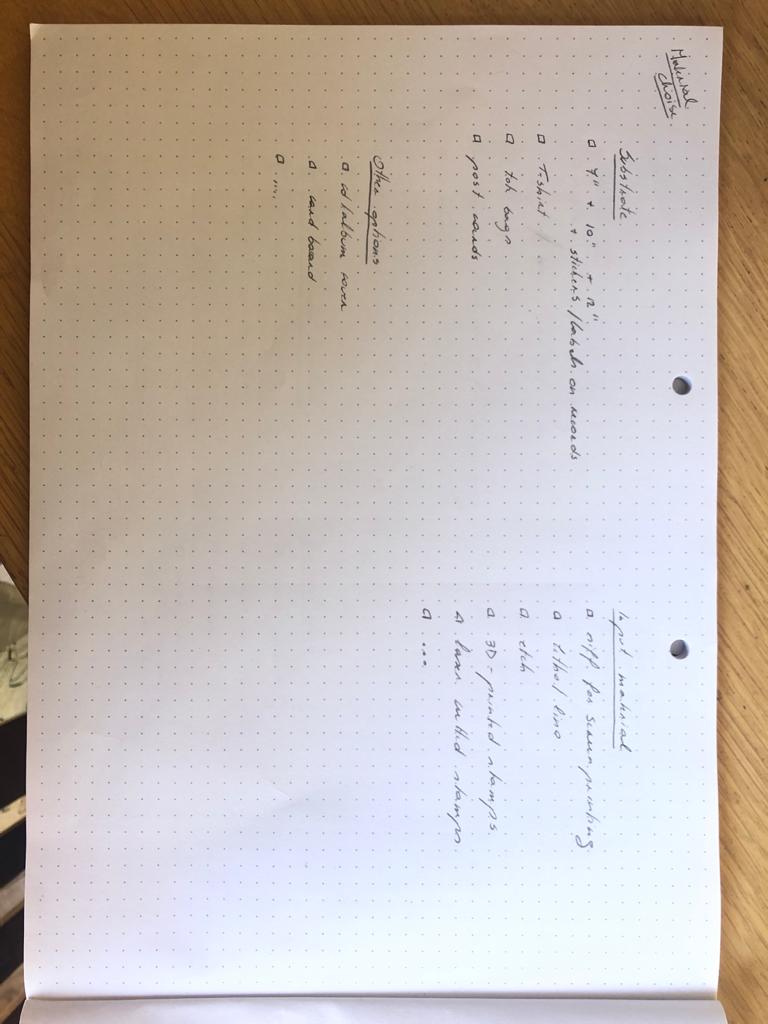 Material
choise.
Substrate
7" + 10" + 12"
+ stickers / labels on records
T-shirt
tote bags
post cards
Other options
cd / album cover
card board
...
Input material
for screenprinting
litho / lino
etch
3D-printed stamps
laser cutted stamps
...